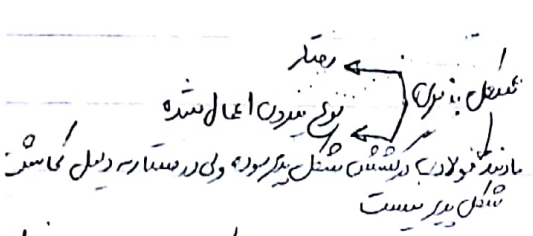 شکل پذیری
رفتار
نوع نیروی اعمال شده
مانند فولاد در کشش شکل پذیر بوده ولی در فشار به دلیل کمانش
شکل پذیر نیست